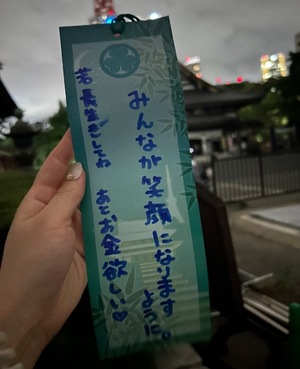 みんなが笑顔になります
ように。
若長生きしてね
あとお金欲しい♡